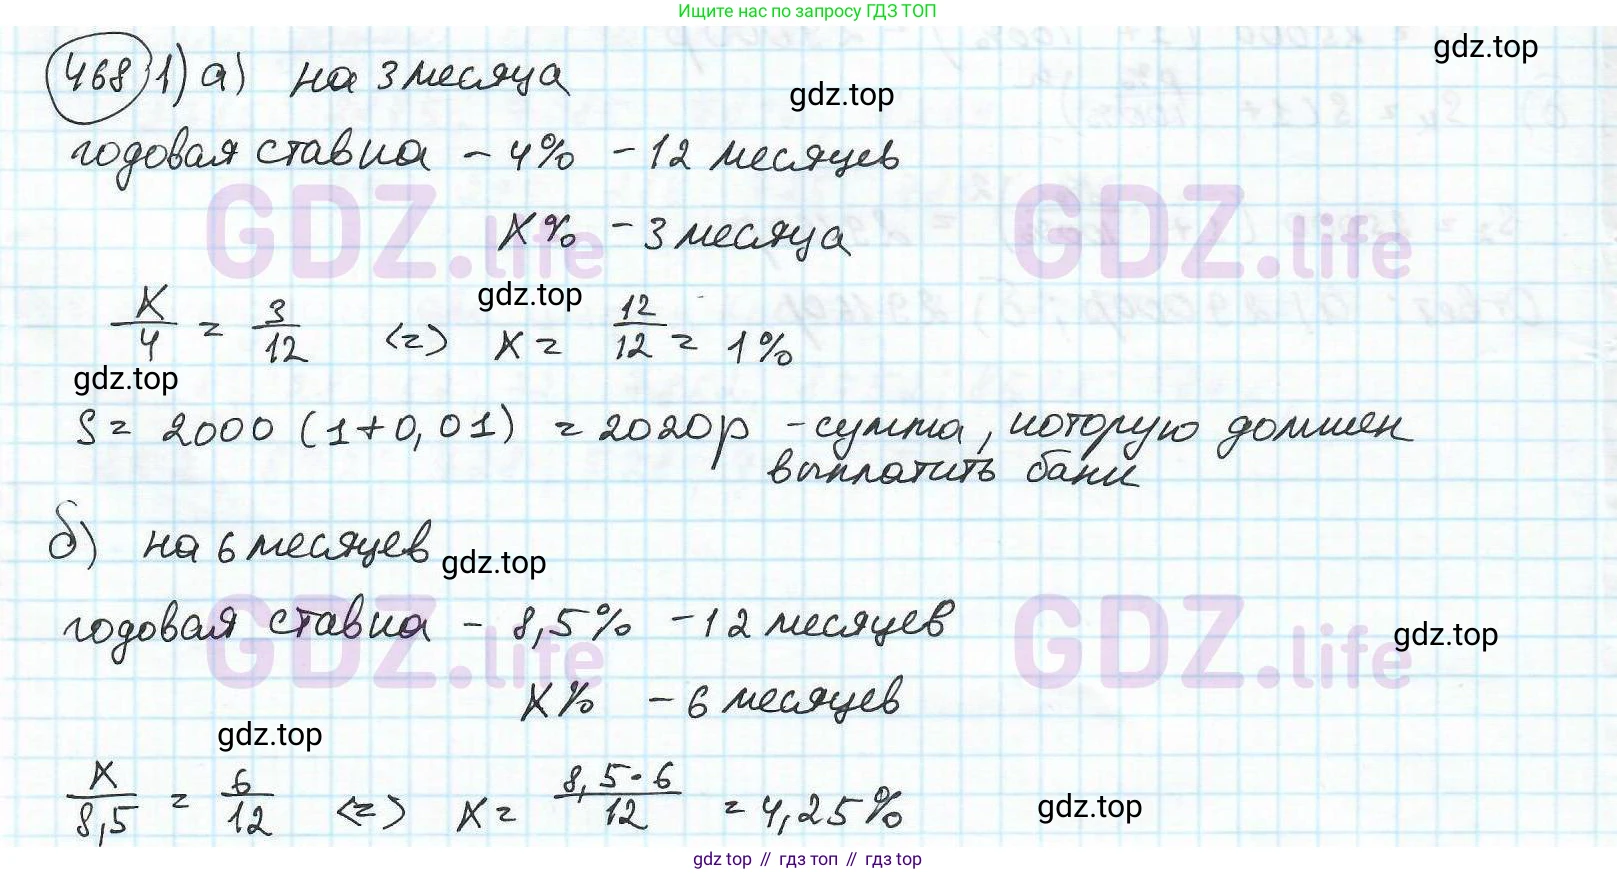 Ищите нас по запросу ГДЗ ТОП
gdz.top
468 1) а) на 3 месяца
gdz.top
годовая ставка - 4% - 12 месяцев
GDZ.life GDZ.life
x% - 3 месяца
gdz.top
x/4 = 3/12 <=> x = 12/12 = 1%
gdz.top
S = 2000 (1+0,01) = 2020р - сумма, которую должен
выплатить банк
б) на 6 месяцев
gdz.top
годовая ставка - 8,5% - 12 месяцев
gdz.top
GDZ.life GDZ.life
x% - 6 месяцев
gdz.top
x/8,5 = 6/12 <=> x = 8,5·6/12 = 4,25%
gdz.top
gdz top // гдз топ // гдз top